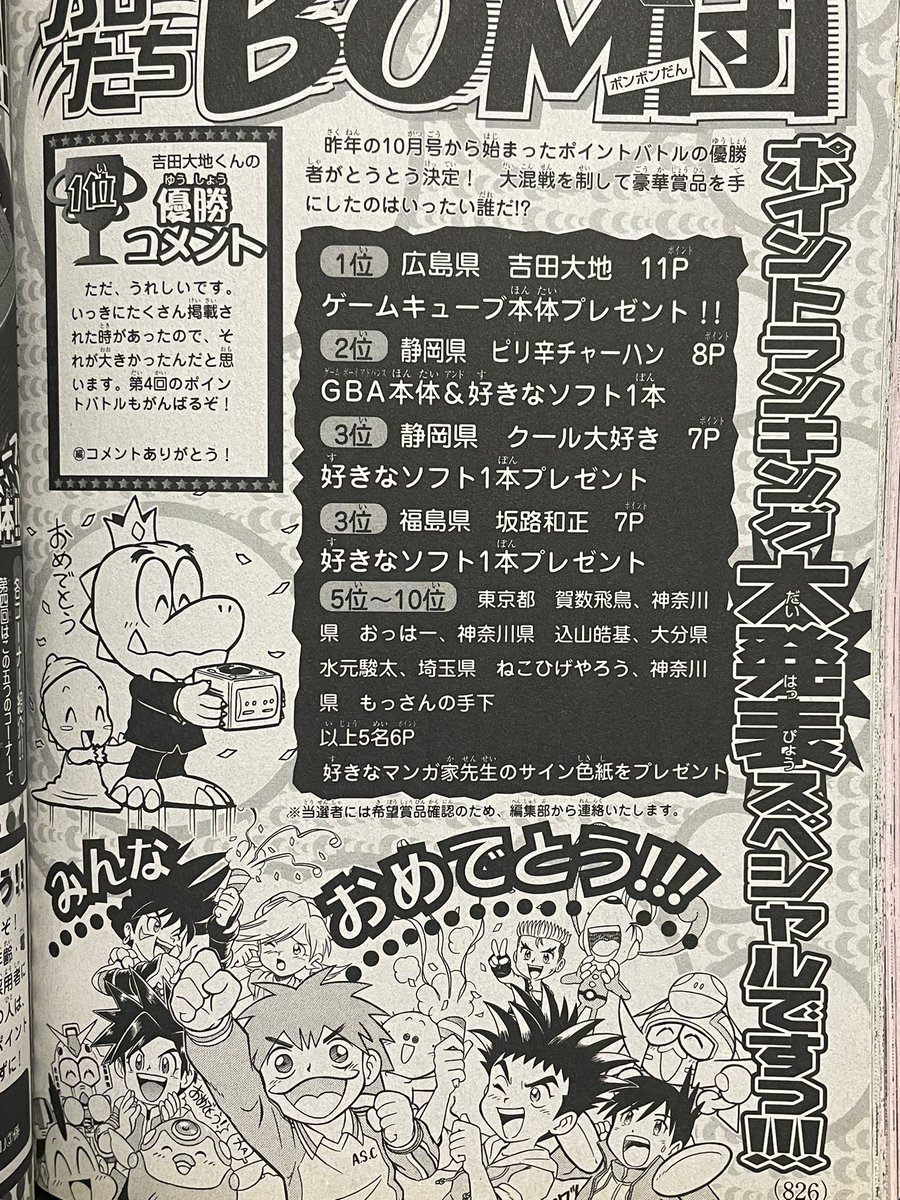 だち
BOM団
ボンボンだん
昨年の10月号から始まったポイントバトルの優勝
者がとうとう決定！　大混戦を制して豪華賞品を手
にしたのはいったい誰だ!?
ポイントランキング大発表スペシャルですっ!!!
1位
吉田大地くんの
優勝
コメント
ただ、うれしいです。
いっきにたくさん掲載さ
れた時があったので、そ
れが大きかったんだと思
います。第4回のポイン
トバトルもがんばるぞ！
編コメントありがとう！
1位　広島県　吉田大地　11P
ゲームキューブ本体プレゼント!!
2位　静岡県　ピリ辛チャーハン　8P
GBA本体＆好きなソフト1本
3位　静岡県　クール大好き　7P
好きなソフト1本プレゼント
3位　福島県　坂路和正　7P
好きなソフト1本プレゼント
5位～10位　東京都　賀数飛鳥、神奈川
県　おっはー、神奈川県　込山皓基、大分県
水元駿太、埼玉県　ねこひげやろう、神奈川
県　もっさんの手下
以上5名6P
好きなマンガ家先生のサイン色紙をプレゼント
※当選者には希望賞品確認のため、編集部から連絡いたします。
おめでとう
みんな
おめでとう!!!
おめでとう
A.S.C
(826)
各コーナー
第四回はこの五つのコーナーで